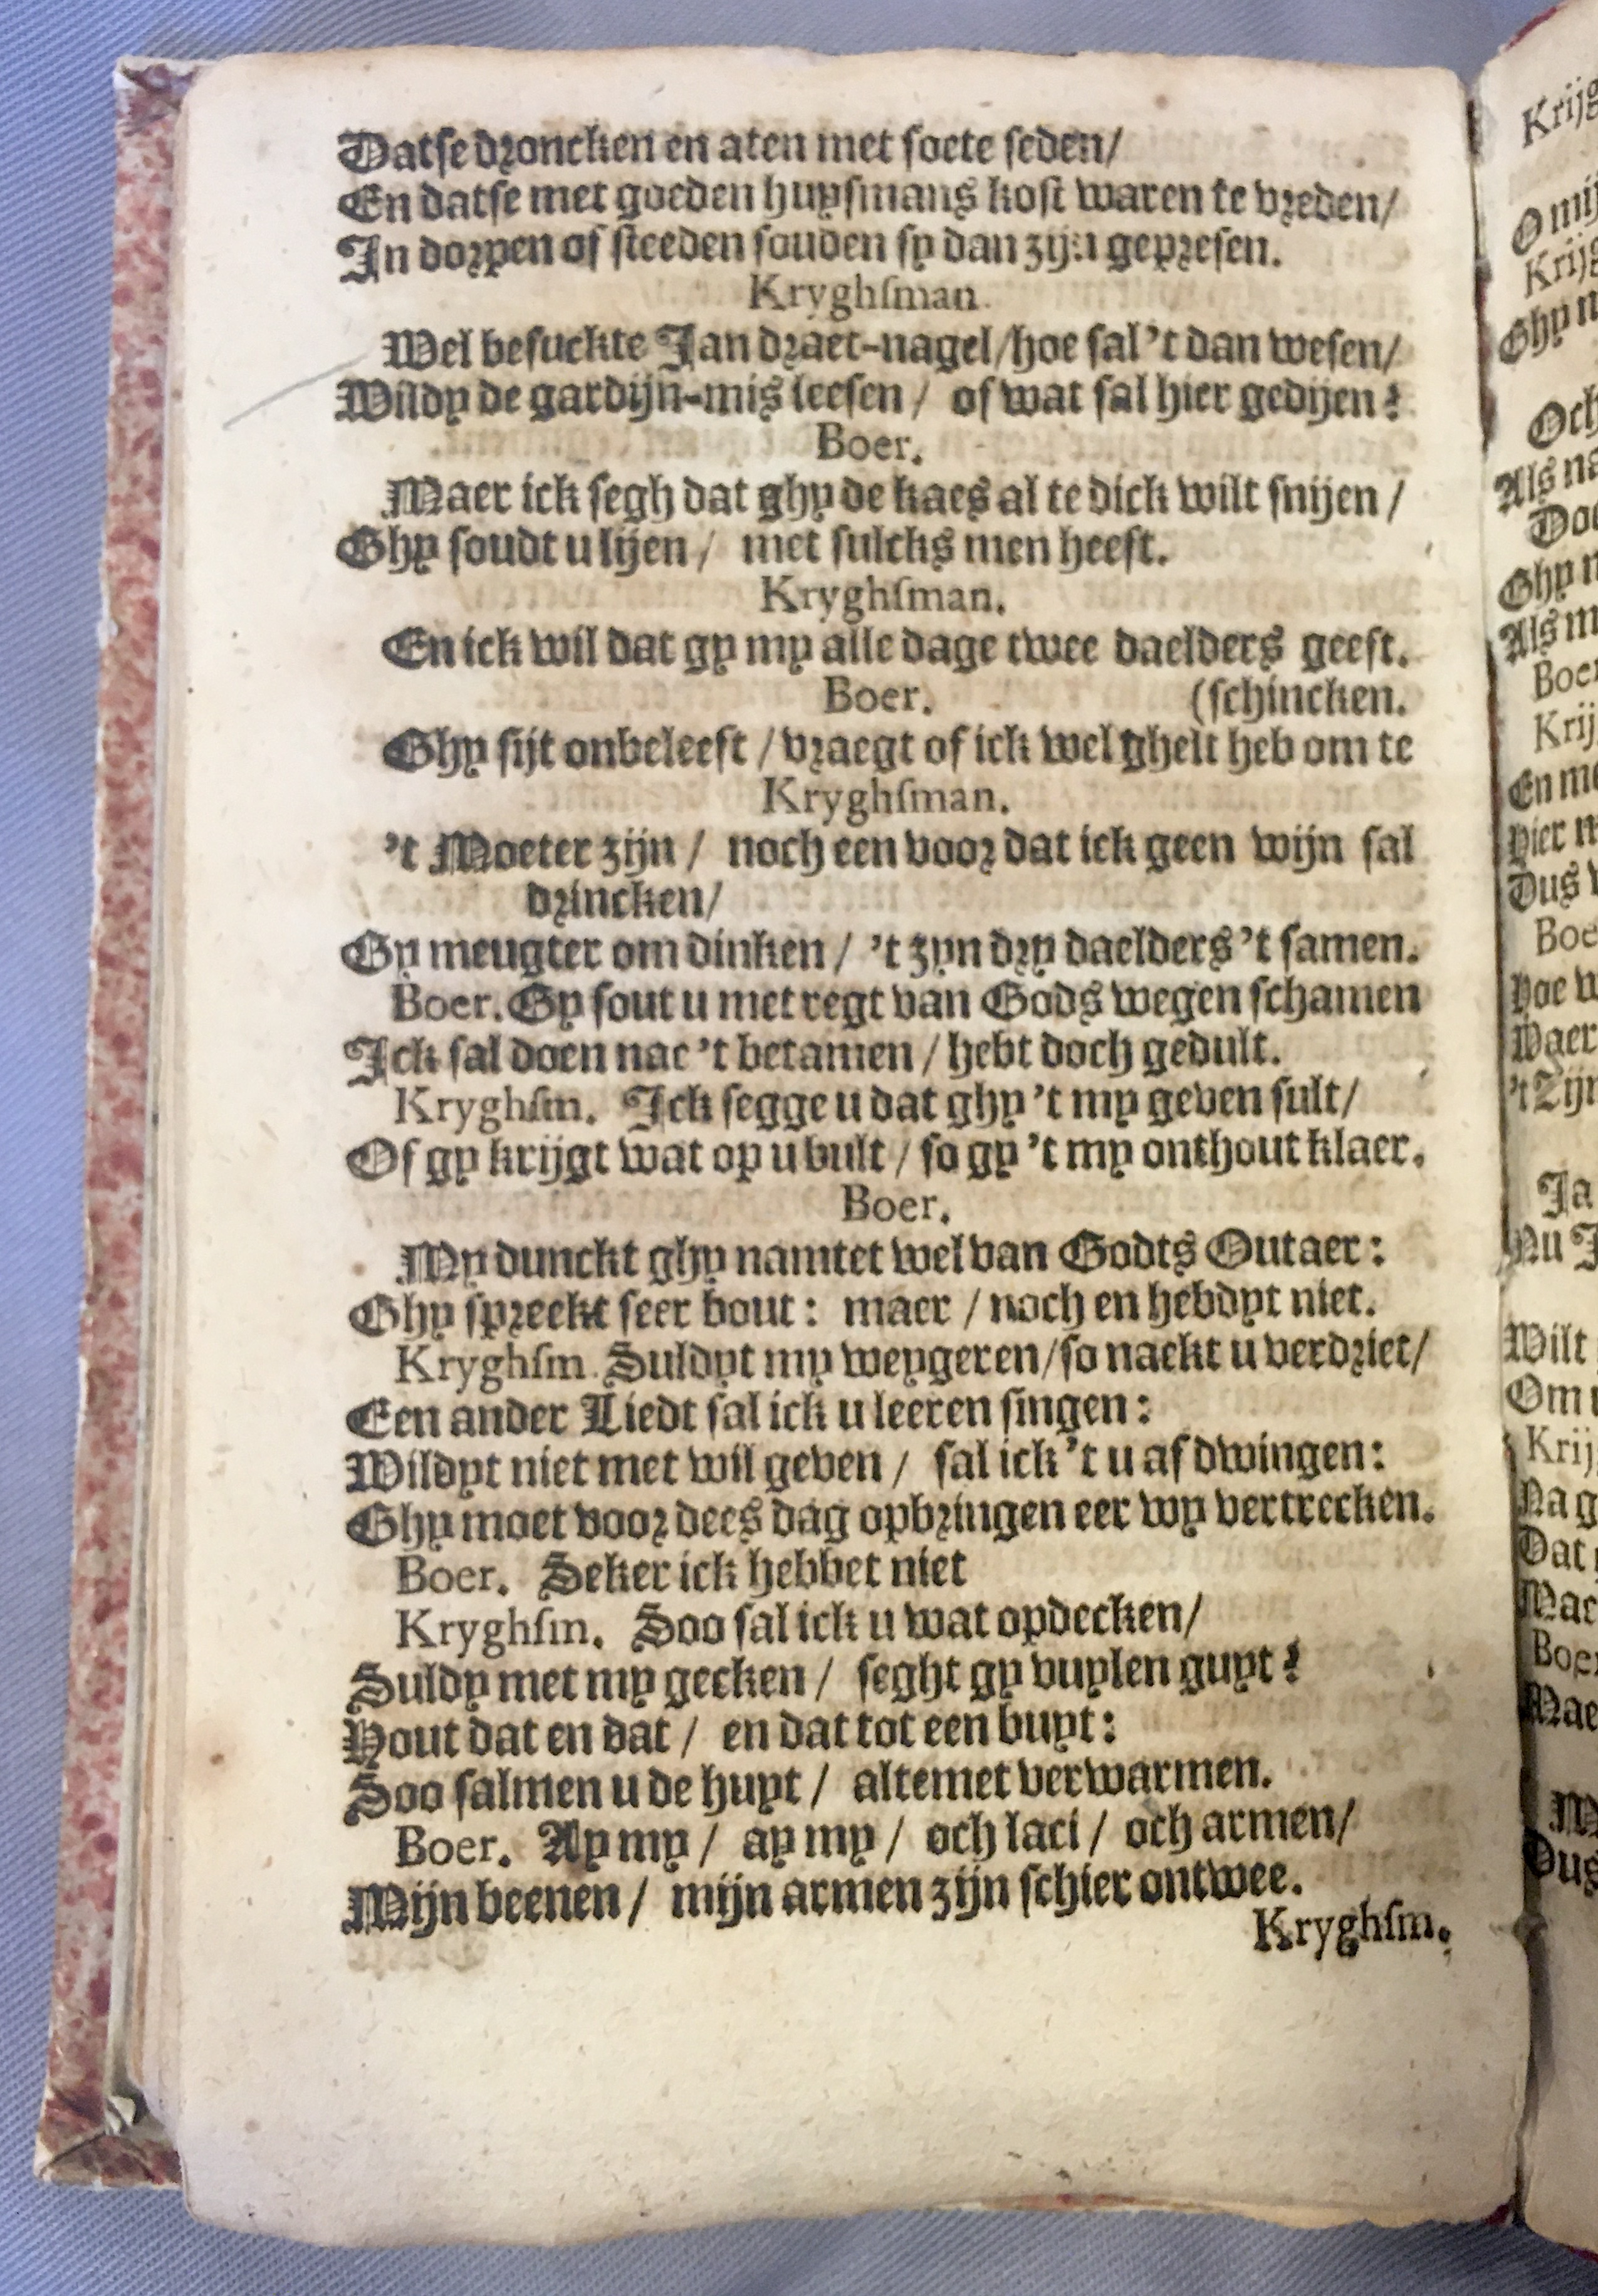 Datse droncken en aten met soete seden/
En datse met goeden huysmans kost waren te vreden/
In dorpen of steeden souden sy dan zijn gepresen.
Kryghſman.
Wel besuckte Jan draet-nagel/hoe sal 't dan wesen/
Wildy de gardijn-mis leesen / of wat sal hier gedijen?
Boer.
Maer ick segh dat ghy de kaes al te dick wilt snijen /
Ghy soudt u lijen / met sulcks men heeft.
Kryghſman.
En ick wil dat gy my alle dage twee daelders geeft.
Boer. (schincken.
Ghy sijt onbeleeft / vraegt of ick wel ghelt heb om te
Kryghſman.
't Moeter zijn / noch een voor dat ick geen wijn sal
drincken/
Gy meugter om dinken / 't zyn dry daelders 't samen.
Boer. Gy sout u met regt van Gods wegen schamen
Ick sal doen nae 't betamen / hebt doch gedult.
Kryghſm. Ick segge u dat ghy 't my geven sult/
Of gy krijgt wat op u bult / so gy 't my onthout klaer.
Boer.
My dunckt ghy namtet wel van Godts Outaer:
Ghy spreekt seer bout: maer / noch en hebdyt niet.
Kryghſm. Suldyt my weygeren/so naekt u verdriet/
Een ander Liedt sal ick u leeren singen:
Wildyt niet met wil geven / sal ick 't u af dwingen:
Ghy moet voor dees dag opbringen eer wy vertrecken.
Boer. Seker ick hebbet niet
Kryghſm. Soo sal ick u wat opdecken/
Suldy met my gecken / seght gy vuylen guyt?
Hout dat en dat / en dat tot een buyt:
Soo salmen u de huyt / altemet verwarmen.
Boer. Ay my / ay my / och laci / och armen/
Mijn beenen / mijn armen zijn schier ontwee.
Kryghſm.
Krijg
O mij
Krijg
Ghy n
Och
Als na
Doe
Ghy n
Als m
Boer
Krij
En me
Hier m
Dus
Boe
Hoe w
Waer
't Zijn
Ja
Nu J
Wilt
Om
Krij
Na g
Dat
Maer
Boer
Mae
M
Dus